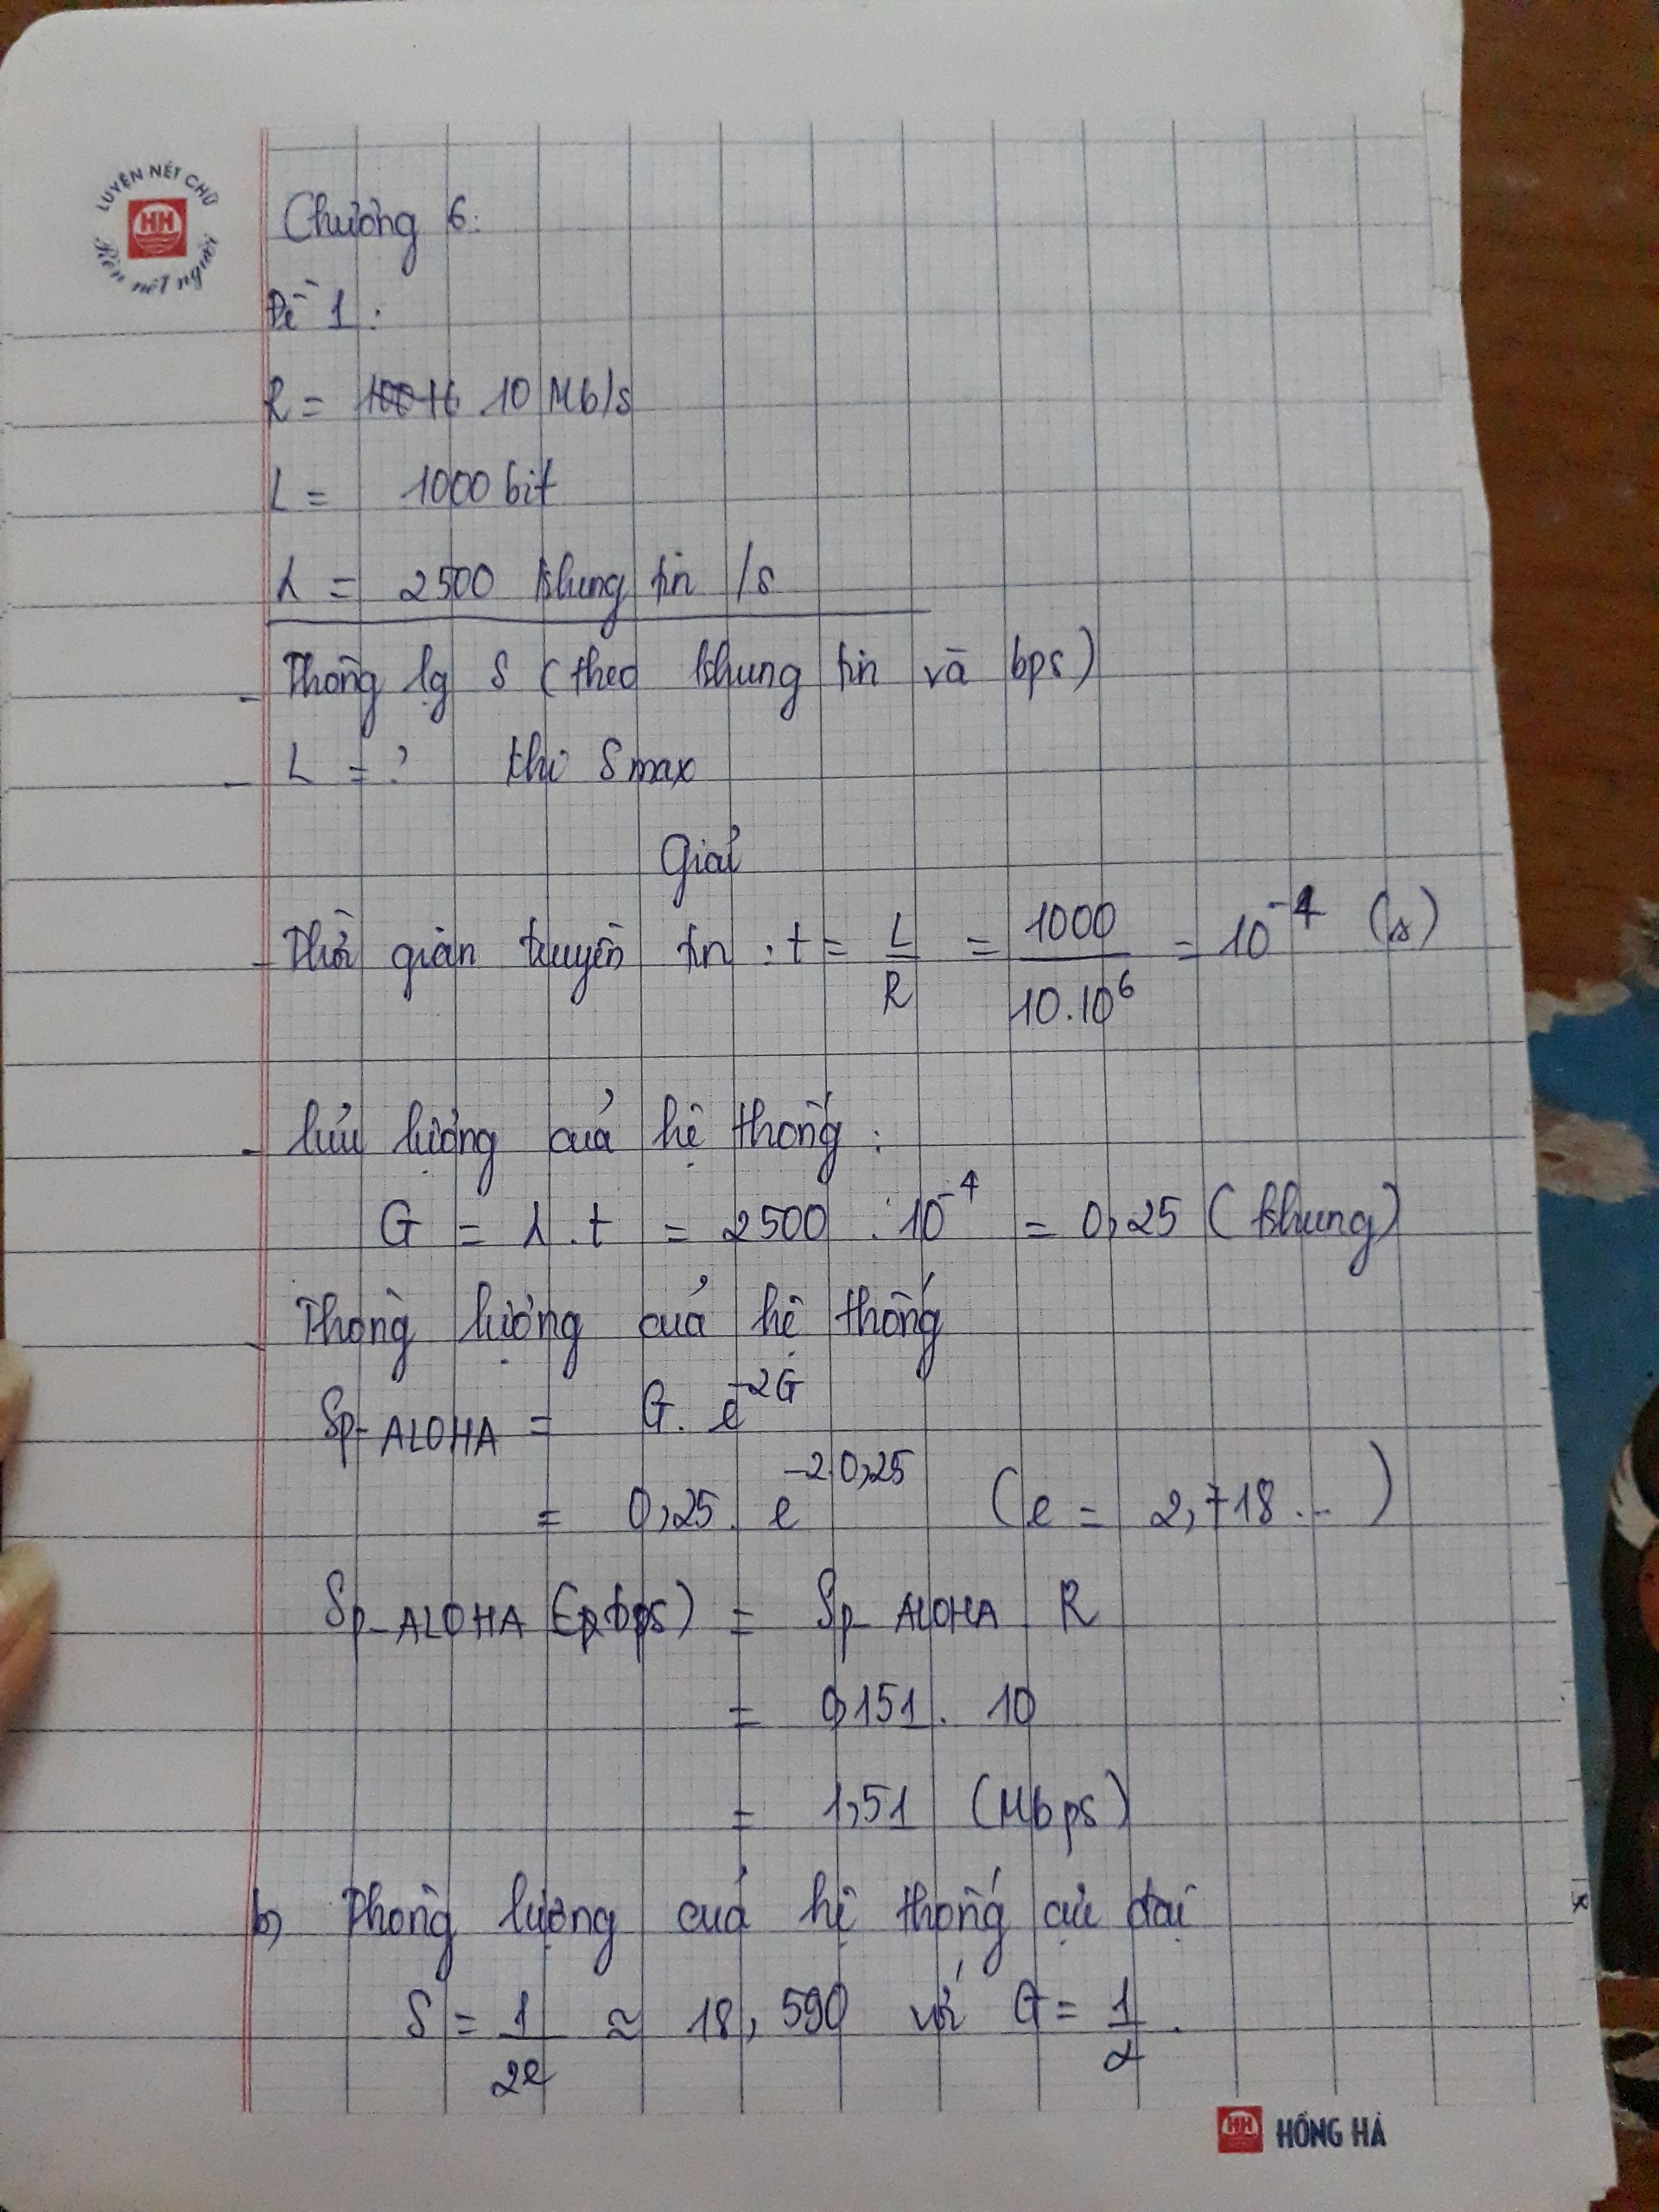 LUYỆN NÉT CHỮ
HH
Rèn nết người
Chương 6:
Đề 1:
R = 10 Mb/s
L = 1000 bit
λ = 2500 khung tin /s
- Thông lg S (theo khung tin và bps)
- L = ? khi Smax
Giải
- Thời gian truyền tin : t = L/R = 1000/10.10^6 = 10^-4 (s)
- Lưu lượng của hệ thống :
G = λ.t = 2500 . 10^-4 = 0,25 (khung)
- Thông lượng của hệ thống
Sp-ALOHA = G. e^-2G
= 0,25. e^-2.0,25 (e = 2,718...)
Sp-ALOHA (bps) = Sp-ALOHA . R
= 0,151. 10
= 1,51 (Mbps)
b) Thông lượng của hệ thống cực đại
S = 1/2e ≈ 18, với G = 1/2.
HH HỒNG HÀ